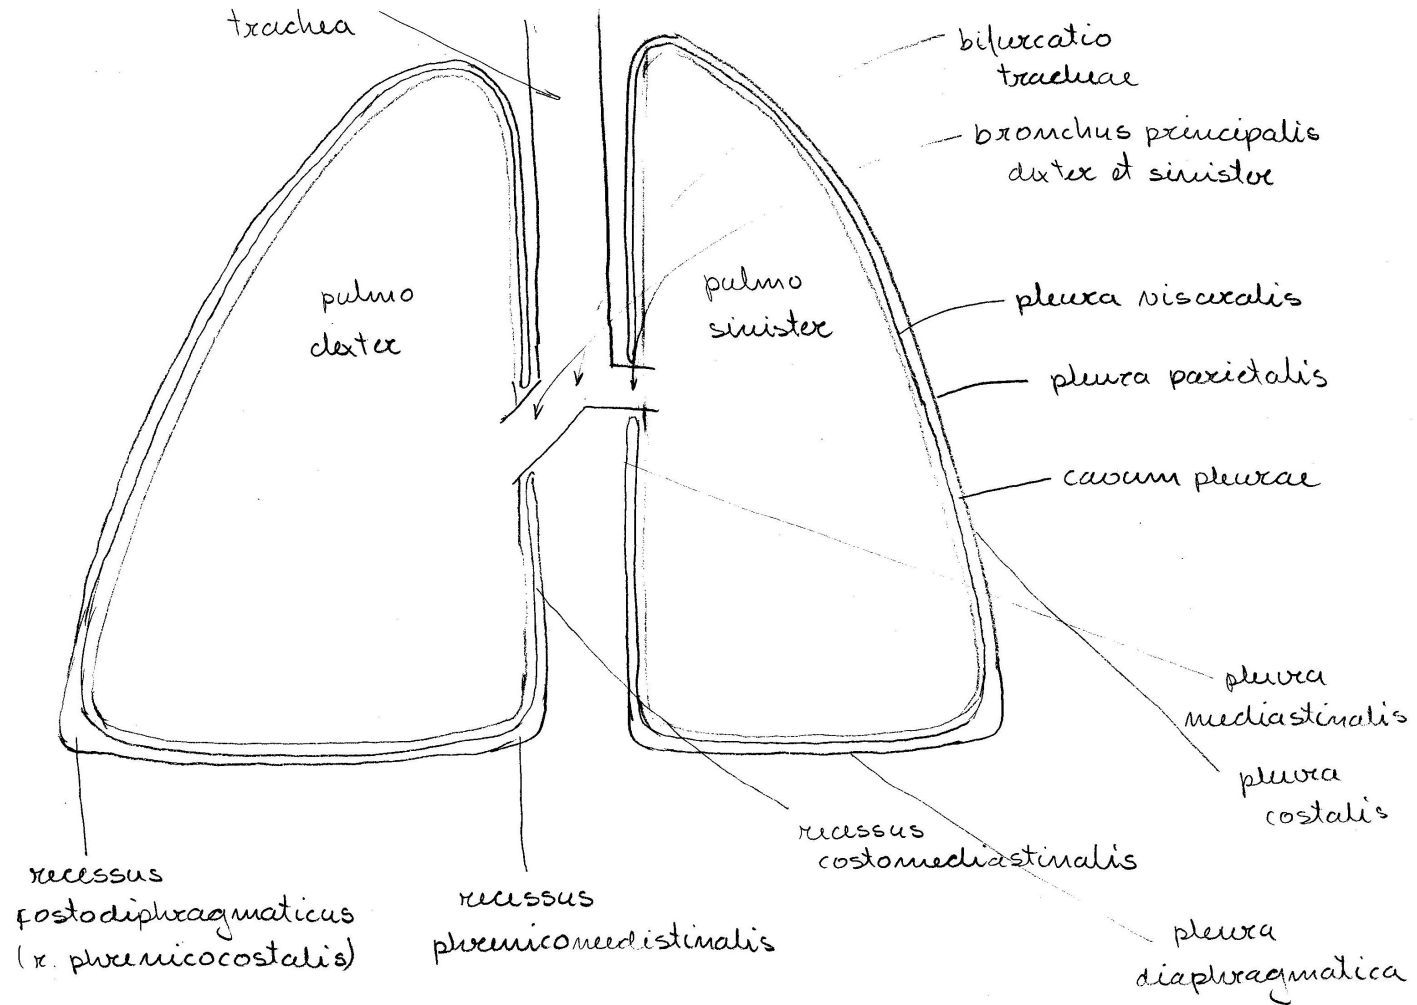 trachea
bifurcatio
tracheae
bronchus principalis
dexter et sinister
pulmo
dexter
pulmo
sinister
pleura visceralis
pleura parietalis
cavum pleurae
pleura
mediastinalis
pleura
costalis
recessus
costomediastinalis
recessus
costodiphragmaticus
(r. phrenicocostalis)
recessus
phrenicomedistinalis
pleura
diaphragmatica